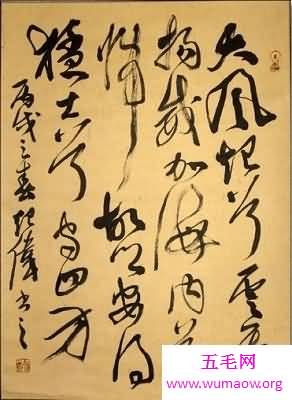 大風起兮雲飛
揚威加海内兮
歸故鄉安得
猛士兮守四方
丙戌之春起偉書之
五毛网
www.wumaow.org